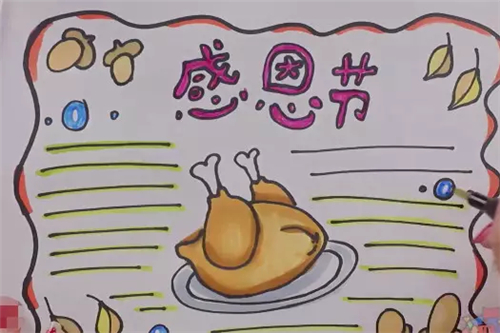 感恩节